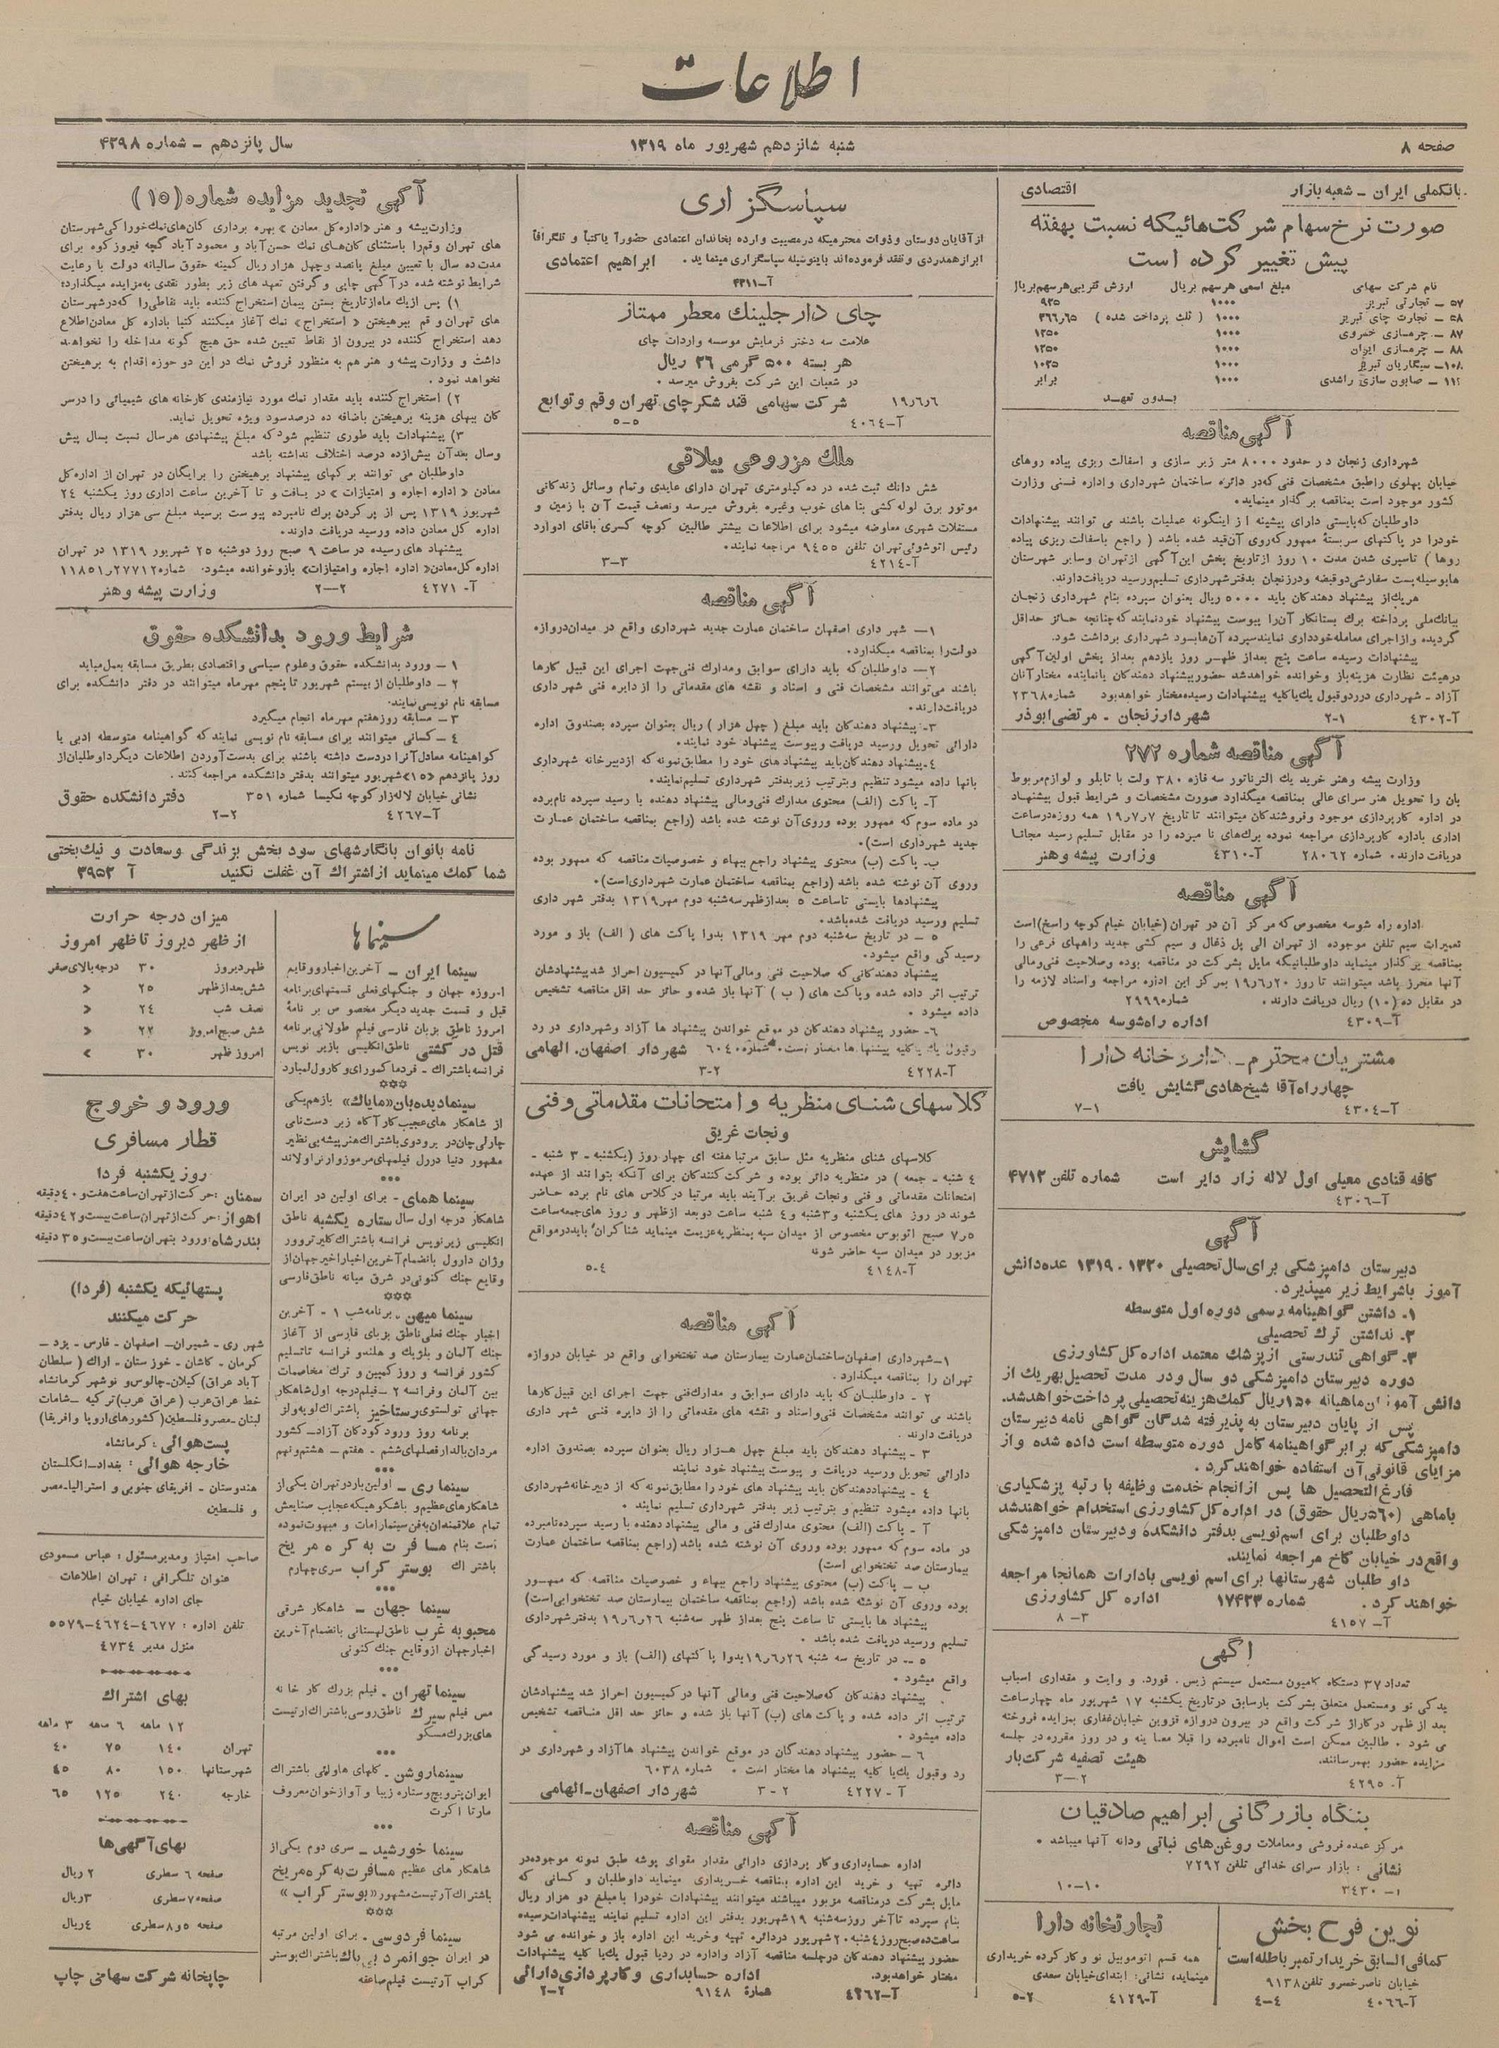 اطلاعات
صفحه ۸
شنبه شانزدهم شهریور ماه ۱۳۱۹
سال پانزدهم – شماره ۴۳۹۸
بانک‌ملی ایران – شعبه بازار
اقتصادی
صورت نرخ سهام شرکت‌هائیکه نسبت بهفته
پیش تغییر کرده است
نام شرکت سهامی مبلغ اسمی هر سهم بریال ارزش تقریبی هر سهم بریال
۵۷ – تجارتی تبریز ۱۰۰۰ ۹۲۵
۵۸ – تجارت چای تبریز ۱۰۰۰ ( ثلث پرداخت شده ) ۳۶۶٫۶۵
۸۷ – چرمسازی خسروی ۱۰۰۰ ۱۲۵۰
۸۸ – چرمسازی ایران ۱۰۰۰ ۱۲۵۰
۱۰۸ – سیگاریان تبریز ۱۰۰۰ ۱۰۲۵
صابون سازی راشدی ۱۰۰۰ برابر
بدون تعهد
آگهی مناقصه
شهرداری زنجان در حدود ۸۰۰۰ متر زیر سازی و اسفالت ریزی پیاده روهای
خیابان پهلوی را طبق مشخصات فنی که در دائره ساختمان شهرداری و اداره فنی وزارت
کشور موجود است بمناقصه برگذار مینماید.
داوطلبان که بایستی دارای پیشینه از اینگونه عملیات باشند می توانند پیشنهادات
خود را در پاکتهای سربستهٔ ممهور که روی آن قید شده باشد ( راجع باسفالت ریزی پیاده
روها ) تا سپری شدن مدت ۱۰ روز از تاریخ پخش این آگهی از تهران و سایر شهرستان
ها بوسیله پست سفارشی دو قبضه و در زنجان بدفتر شهرداری تسلیم و رسید دریافت دارند.
هر یک از پیشنهاد دهندگان باید ۵۰۰۰ ریال بعنوان سپرده بنام شهرداری زنجان
ببانک ملی پرداخته برگ بستانکار آن را پیوست پیشنهاد خود نمایند که چنانچه حائز حداقل
گردیده و از اجرای معامله خودداری نمایند سپرده آن‌ها بسود شهرداری برداشت شود.
پیشنهادات رسیده ساعت پنج بعد از ظهر روز یازدهم بعد از پخش اولین آگهی
در هیئت نظارت هزینه باز و خوانده خواهد شد حضور پیشنهاد دهندگان یا نماینده مختار آنان
آزاد – شهرداری در رد و قبول یک یا کلیه پیشنهادات رسیده مختار خواهد بود شماره ۲۳۶۸
آ–۴۳۰۲ ۲-۱ شهردار زنجان – مرتضی ابوذر
آگهی مناقصه شماره ۲۷۲
وزارت پیشه و هنر خرید یک الترناتور سه فازه ۳۸۰ ولت با تابلو و لوازم مربوط
بان را تحویل هنر سرای عالی بمناقصه میگذارد صورت مشخصات و شرایط قبول پیشنهاد
در اداره کارپردازی موجود و فروشندگان میتوانند تا تاریخ ۱۹٫۷٫۷ همه روزه در ساعت
اداری باداره کارپردازی مراجعه نموده برگ‌های نامبرده را در مقابل تسلیم رسید مجانا
دریافت دارند. شماره ۲۸۰۶۲ آ–۴۳۱۰ وزارت پیشه و هنر
آگهی مناقصه
اداره راه شوسه مخصوص که مرکز آن در تهران (خیابان خیام کوچه راسخ) است
تعمیرات سیم تلفن موجوده از تهران الی پل ذغال و سیم کشی جدید راههای فرعی را
بمناقصه برگذار مینماید داوطلبانیکه مایل بشرکت در مناقصه بوده و صلاحیت فنی و مالی
آنها محرز باشد میتوانند تا روز ۱۹٫۶٫۲۰ بمرکز این اداره مراجعه و اسناد لازمه را
در مقابل ده (۱۰) ریال دریافت دارند. شماره ۲۹۹۹
آ–۴۳۰۹ اداره راه شوسه مخصوص
مشتریان محترم – داروخانه دارا
چهارراه آقا شیخ هادی گشایش یافت
آ–۴۳۰۴ ۱–۷
گشایش
کافه قنادی معیلی اول لاله زار دایر است شماره تلفن ۴۷۱۳
آ–۴۳۰۶
آگهی
دبیرستان دامپزشکی برای سال تحصیلی ۱۳۲۰ – ۱۳۱۹ عده دانش
آموز باشرایط زیر میپذیرد.
۱- داشتن گواهینامه رسمی دوره اول متوسطه
۲- نداشتن ترک تحصیلی
۳- گواهی تندرستی از پزشک معتمد اداره کل کشاورزی
دوره دبیرستان دامپزشکی دو سال و در مدت تحصیل بهر یک از
دانش آموزان ماهیانه ۱۵۰ ریال کمک هزینه تحصیلی پرداخت خواهد شد.
پس از پایان دبیرستان به پذیرفته شدگان گواهی نامه دبیرستان
دامپزشکی که برابر گواهینامه کامل دوره متوسطه است داده شده و از
مزایای قانونی آن استفاده خواهند کرد.
فارغ التحصیل ها پس از انجام خدمت وظیفه با رتبه پزشکیاری
باماهی (۵۶۰ ریال حقوق) در اداره کل کشاورزی استخدام خواهند شد
داوطلبان برای اسم نویسی بدفتر دانشکده و دبیرستان دامپزشکی
واقع در خیابان کاخ مراجعه نمایند.
داوطلبان شهرستانها برای اسم نویسی بادارات همانجا مراجعه
خواهند کرد. شماره ۱۷۴۳۳ اداره کل کشاورزی
آ–۴۱۵۷ ۳–۸
آگهی
تعداد ۳۷ دستگاه کامیون مستعمل سیستم زیس، فورد، و وایت و مقداری اسباب
یدکی نو و مستعمل متعلق بشرکت بار سابق در تاریخ یکشنبه ۱۷ شهریور ماه چهار ساعت
بعد از ظهر در کاراژ شرکت واقع در بیرون دروازه قزوین خیابان غفاری بمزایده فروخته
می شود. طالبین ممکن است اموال نامبرده را قبلا معاینه و در روز مقرره در جلسه
مزایده حضور بهمرسانند. هیئت تصفیه شرکت بار
آ–۴۲۹۵ ۲–۳
بنگاه بازرگانی ابراهیم صادقیان
مرکز عمده فروشی و معاملات روغن های نباتی و دانه آنها میباشد.
نشانی: بازار سرای خدائی تلفن ۷۲۹۲
آ–۳۴۳۰ ۱۰–۱۰
نوین فرح بخش
کمافی السابق خریدار تمبر باطله است
خیابان ناصر خسرو تلفن ۹۱۳۸
آ–۴۰۶۶ ۴–۴
تجارتخانه دارا
همه قسم اتوموبیل نو و کار کرده خریداری
مینماید، نشانی: ابتدای خیابان سعدی
آ–۴۱۲۹ ۲–۵
سپاسگزاری
از آقایان دوستان و ذوات محترمیکه در مصیبت وارده بخاندان اعتمادی حضوراً یا کتباً و تلگرافاً
ابراز همدردی و تفقد فرموده‌اند باینوسیله سپاسگزاری مینماید. ابراهیم اعتمادی
آ–۴۳۱۱
چای دارجلینک معطر ممتاز
علامت سه دختر فرمایش موسسه واردات چای
هر بسته ۵۰۰ گرمی ۲۶ ریال
در شعبات این شرکت بفروش میرسد.
۱۹٫۶٫۶ شرکت سهامی قند شکر چای تهران و قم و توابع
آ–۴۰۶۴ ۵–۵
ملک مزروعی ییلاقی
شش دانک ثبت شده در ده کیلومتری تهران دارای عایدی و تمام وسائل زندگانی
موتور برق لوله کشی بنا های خوب و غیره بفروش میرسد و نصف قیمت آن با زمین و
مستغلات شهری معاوضه میشود برای اطلاعات بیشتر طالبین کوچه کسری باقای ادوارد
رئیس اتوشوئی تهران تلفن ۹۴۵۵ مراجعه نمایند.
آ–۴۲۱۴ ۳–۳
آگهی مناقصه
۱– شهرداری اصفهان ساختمان عمارت جدید شهرداری واقع در میدان دروازه
دولت را بمناقصه میگذارد.
۲– داوطلبان که باید دارای سوابق و مدارک فنی جهت اجرای این قبیل کارها
باشند می‌توانند مشخصات فنی و اسناد و نقشه های مقدماتی را از دایره فنی شهرداری
دریافت دارند.
۳– پیشنهاد دهندگان باید مبلغ ( چهل هزار ) ریال بعنوان سپرده بصندوق اداره
دارائی تحویل و رسید دریافت و پیوست پیشنهاد خود نمایند.
۴– پیشنهاد دهندگان باید پیشنهاد های خود را مطابق نمونه که از دبیرخانه شهرداری
بانها داده میشود تنظیم و بترتیب زیر بدفتر شهرداری تسلیم نمایند.
آ– پاکت (الف) محتوی مدارک فنی و مالی پیشنهاد دهنده با رسید سپرده نام برده
در ماده سوم که ممهور بوده و روی آن نوشته شده باشد (راجع بمناقصه ساختمان عمارت
جدید شهرداری است).
ب– پاکت (ب) محتوی پیشنهاد راجع ببهاء و خصوصیات مناقصه که ممهور بوده
وروی آن نوشته شده باشد (راجع بمناقصه ساختمان عمارت شهرداری است).
پیشنهادها بایستی تا ساعت ۵ بعد از ظهر سه‌شنبه دوم مهر ۱۳۱۹ بدفتر شهرداری
تسلیم و رسید دریافت شده باشد.
۵ – در تاریخ سه‌شنبه دوم مهر ۱۳۱۹ بدوا پاکت های (الف) باز و مورد
رسیدگی واقع میشود.
پیشنهاد دهندگانی که صلاحیت فنی و مالی آنها در کمیسیون احراز شد پیشنهادشان
ترتیب اثر داده شده و پاکت های ( ب ) آنها باز شده و حائز حد اقل مناقصه تشخیص
داده میشود.
۶– حضور پیشنهاد دهندگان در موقع خواندن پیشنهاد ها آزاد و شهرداری در رد
و قبول یک یا کلیه پیشنهادها مختار است. شماره ۶۰۴۰ شهردار اصفهان. الهامی
آ–۴۲۲۸ ۲–۳
کلاسهای شنای منظریه و امتحانات مقدماتی و فنی
و نجات غریق
کلاسهای شنای منظریه مثل سابق مرتبا هفته ای چهار روز (یکشنبه – ۳ شنبه –
۴ شنبه – جمعه ) در منظریه دائر بوده و شرکت کنندگان برای آنکه بتوانند از عهده
امتحانات مقدماتی و فنی و نجات غریق برآیند باید مرتبا در کلاس های نام برده حاضر
شوند در روز های یکشنبه و ۳ شنبه و ۴ شنبه ساعت دو بعد از ظهر و روز های جمعه ساعت
۷٫۵ صبح اتوبوس مخصوص از میدان سپه بمنظریه عزیمت مینماید شناگران باید در مواقع
مزبور در میدان سپه حاضر شوند
آ–۴۱۴۸ ۴–۵
آگهی مناقصه
۱– شهرداری اصفهان ساختمان عمارت بیمارستان صد تختخوابی واقع در خیابان دروازه
تهران را بمناقصه میگذارد.
۲ – داوطلبان که باید دارای سوابق و مدارک فنی جهت اجرای این قبیل کارها
باشند می توانند مشخصات فنی و اسناد و نقشه های مقدماتی را از دایره فنی شهرداری
دریافت دارند.
۳ – پیشنهاد دهندگان باید مبلغ چهل هزار ریال بعنوان سپرده بصندوق اداره
دارائی تحویل و رسید دریافت و پیوست پیشنهاد خود نمایند
۴ – پیشنهاد دهندگان باید پیشنهاد های خود را مطابق نمونه که از دبیرخانه شهرداری
بانها داده میشود تنظیم و بترتیب زیر بدفتر شهرداری تسلیم نمایند.
آ – پاکت (الف) محتوی مدارک فنی و مالی پیشنهاد دهنده با رسید سپرده نامبرده
در ماده سوم که ممهور بوده وروی آن نوشته شده باشد (راجع بمناقصه ساختمان عمارت
بیمارستان صد تختخوابی است)
ب – پاکت (ب) محتوی پیشنهاد راجع ببهاء و خصوصیات مناقصه که ممهور
بوده وروی آن نوشته شده باشد (راجع بمناقصه ساختمان بیمارستان صد تختخوابی است)
پیشنهاد ها بایستی تا ساعت پنج بعد از ظهر سه‌شنبه ۱۹٫۶٫۲۶ بدفتر شهرداری
تسلیم و رسید دریافت شده باشد.
۵ – در تاریخ سه شنبه ۱۹٫۶٫۲۶ بدوا پاکتهای (الف) باز و مورد رسیدگی
واقع میشود.
پیشنهاد دهندگان که صلاحیت فنی و مالی آنها در کمیسیون احراز شد پیشنهادشان
ترتیب اثر داده شده و پاکت های (ب) آنها باز شده و حائز حد اقل مناقصه تشخیص
داده میشود.
۶ – حضور پیشنهاد دهندگان در موقع خواندن پیشنهاد ها آزاد و شهرداری در
رد و قبول یک یا کلیه پیشنهاد ها مختار است. شماره ۶۰۳۸
آ–۴۲۲۷ ۲–۳ شهردار اصفهان–الهامی
آگهی مناقصه
اداره حسابداری و کار پردازی دارائی مقدار مقوای پوشه طبق نمونه موجوده در
دائره تهیه و خرید این اداره بمناقصه خریداری مینماید داوطلبان و کسانی که
مایل بشرکت در مناقصه مزبور میباشند میتوانند پیشنهادات خود را با مبلغ دو هزار ریال
بنام سپرده تا آخر روز سه‌شنبه ۱۹ شهریور بدفتر این اداره تسلیم نمایند پیشنهادات رسیده
ساعت ده صبح روز ۴ شنبه ۲۰ شهریور در دائره تهیه و خرید این اداره باز و خوانده می شود
حضور پیشنهاد دهندگان در جلسه مناقصه آزاد و اداره در رد یا قبول یک یا کلیه پیشنهادات
مختار خواهد بود. اداره حسابداری و کارپردازی دارائی
آ–۴۲۶۲ شماره ۹۱۴۸ ۲–۲
آگهی تجدید مزایده شماره (۱۵)
وزارت پیشه و هنر «اداره کل معادن» بهره برداری کان‌های نمک خوراکی شهرستان
های تهران و قم را باستثنای کان‌های نمک حسن‌آباد و محمود آباد گچه فیروزکوه برای
مدت ده سال با تعیین مبلغ پانصد و چهل هزار ریال کمینه حقوق سالیانه دولت با رعایت
شرایط نوشته شده در آگهی چاپی و گرفتن تعهد های زیر بطور نقدی بمزایده میگذارد:
۱) پس از یک ماه از تاریخ بستن پیمان استخراج کننده باید نقاطی را که در شهرستان
های تهران و قم ببرهیختن «استخراج» نمک آغاز میکنند کتبا باداره کل معادن اطلاع
دهد استخراج کننده در بیرون از نقاط تعیین شده حق هیچ گونه مداخله را نخواهد
داشت و وزارت پیشه و هنر هم به منظور فروش نمک در این دو حوزه اقدام به برهیختن
نخواهد نمود.
۲) استخراج کننده باید مقدار نمک مورد نیازمندی کارخانه های شیمیائی را در سر
کان ببهای هزینه برهیختن باضافه ده درصد سود ویژه تحویل نماید.
۳) پیشنهادات باید طوری تنظیم شود که مبلغ پیشنهادی هر سال نسبت بسال پیش
وسال بعد آن بیش از ده درصد اختلاف نداشته باشد
داوطلبان می توانند برگهای پیشنهاد برهیختن را برایگان در تهران از اداره کل
معادن «اداره اجاره و امتیازات» دریافت و تا آخرین ساعت اداری روز یکشنبه ۲۴
شهریور ۱۳۱۹ پس از پر کردن برگ نامبرده پیوست برسید مبلغ سی هزار ریال بدفتر
اداره کل معادن داده ورسید دریافت دارند.
پیشنهاد های رسیده در ساعت ۹ صبح روز دوشنبه ۲۵ شهریور ۱۳۱۹ در تهران
اداره کل معادن «اداره اجاره و امتیازات» باز و خوانده میشود. شماره ۲۷۷۱۲ر۱۱۸۵۱
آ–۴۲۷۱ ۲–۲ وزارت پیشه و هنر
شرایط ورود بدانشکده حقوق
۱ – ورود بدانشکده حقوق و علوم سیاسی و اقتصادی بطریق مسابقه بعمل میاید
۲ – داوطلبان از بیستم شهریور تا پنجم مهر ماه میتوانند در دفتر دانشکده برای
مسابقه نام نویسی نمایند.
۳ – مسابقه روز هفتم مهر ماه انجام میگیرد
۴ – کسانی میتوانند برای مسابقه نام نویسی نمایند که گواهینامه متوسطه ادبی یا
گواهینامه معادل آنرا در دست داشته باشند برای بدست آوردن اطلاعات دیگر داوطلبان از
روز پانزدهم «۱۵» شهریور میتوانند بدفتر دانشکده مراجعه کنند.
نشانی خیابان لاله زار کوچه نکیسا شماره ۳۵۱ دفتر دانشکده حقوق
آ–۴۲۶۷ ۲–۲
نامه بانوان بانگارشهای سود بخش بزندگی وسعادت و نیک‌بختی
شما کمک مینماید از اشتراک آن غفلت نکنید آ ۳۹۵۳
سینماها
سینما ایران – آخرین اخبار و وقایع
امروزه جهان و جنگهای فعلی قسمتهای برنامه
قبل و قسمت جدید دیگر مخصوص بر نامهٔ
امروز ناطق بزبان فارسی فیلم طولانی برنامه
قتل در کشتی ناطق انگلیسی بازیر نویس
فرانسه باشتراک – فردما کموری و کارول لمبارد
سینما دیده‌بان «مایاک» باز هم یکی
از شاهکار های عجیب کارآگاه زبر دست نامی
چارلی چان در برودوی باشتراک هنرپیشه بی نظیر
مشهور دنیا درول فیلمهای مرموز وارنر اولاند
سینما همای – برای اولین در ایران
شاهکار درجه اول سال ستاره یکشبه ناطق
انگلیسی زیر نویس فرانسه باشتراک کلیر تروور
وژان دارول بانضمام آخرین اخبار اخیر جهان از
وقایع جنک کنونی در شرق میانه ناطق فارسی
سینما میهن – برنامه شب ۱ – آخرین
اخبار جنک فعلی ناطق بزبان فارسی از آغاز
جنک آلمان و بلژیک و هلند و فرانسه تا تسلیم
کشور فرانسه و روز کمپین و ترک مخاصمات
بین آلمان و فرانسه ۲ – فیلم درجه اول شاهکار
جهانی تولستوی رستاخیز باشتراک لوپه ولز
برنامه روز ورود کودکان آزاد – کشور
مردان بالدار فصلهای ششم – هفتم – هشتم و نهم
سینما ری – اولین بار در تهران یکی از
شاهکارهای عظیم و باشکوهیکه عجایب صنایعش
تمام علاقمندان بفن سینما را مات و مبهوت نموده
است بنام مسافرت به کره مریخ
باشتراک بوستر کراب سری چهارم
سینما جهان – شاهکار شرقی
محبوبه غرب ناطق لهستانی بانضمام آخرین
اخبار جهان از وقایع جنک کنونی
سینما تهران – فیلم بزرک کارخانه
مس فیلم سیرک ناطق روسی باشتراک ارتیست
های بزرک مسکو
سینما روشن – گلهای هاوائی باشتراک
ایوان پترویچ و ستاره زیبا و آواز خوان معروف
مارتا اگرت
سینما خورشید – سری دوم یکی از
شاهکار های عظیم مسافرت به کره مریخ
باشتراک آرتیست مشهور «بوستر کراب»
سینما فردوسی – برای اولین مرتبه
در ایران جوانمرد بیباک باشتراک بوستر
کراب آرتیست فیلم صاعقه
میزان درجه حرارت
از ظهر دیروز تا ظهر امروز
ظهر دیروز ۳۰ درجه بالای صفر
شش بعد از ظهر ۲۵ «
نصف شب ۲۴ «
شش صبح امروز ۲۲ «
امروز ظهر ۳۰ »
ورود و خروج
قطار مسافری
روز یکشنبه فردا
سمنان: حرکت از تهران ساعت هفت و ۴۰ دقیقه
اهواز: حرکت از تهران ساعت بیست و ۴۲ دقیقه
بندر شاه: ورود بتهران ساعت بیست و ۳۵ دقیقه
پستهائیکه یکشنبه (فردا)
حرکت میکنند
شهر ری – شمیران – اصفهان – فارس – یزد –
کرمان – کاشان – خوزستان – اراک ( سلطان
آباد عراق) گیلان – چالوس و نوشهر کرمانشاه
خط عراق عرب (عراق عرب) ترکیه – شامات
لبنان – مصر و فلسطین (کشورهای اروپا و افریقا)
پست هوائی: کرمانشاه
خارجه هوائی: بغداد – انگلستان
هندوستان – افریقای جنوبی و استرالیا – مصر
و فلسطین
صاحب امتیاز و مدیر مسئول: عباس مسعودی
عنوان تلگرافی: تهران اطلاعات
جای اداره خیابان خیام
تلفن اداره: ۴۶۷۷–۴۶۲۴–۵۵۷۹
منزل مدیر ۴۷۳۴
بهای اشتراک
۱۲ ماهه ۶ ماهه ۳ ماهه
تهران ۱۴۰ ۷۵ ۴۰
شهرستانها ۱۵۰ ۸۰ ۴۵
خارجه ۲۴۰ ۱۲۵ ۶۵
بهای آگهی‌ها
صفحه ۶ سطری ۲ ریال
صفحه ۷ سطری ۳ ریال
صفحه ۵ و ۸ سطری ۴ ریال
چاپخانه شرکت سهامی چاپ